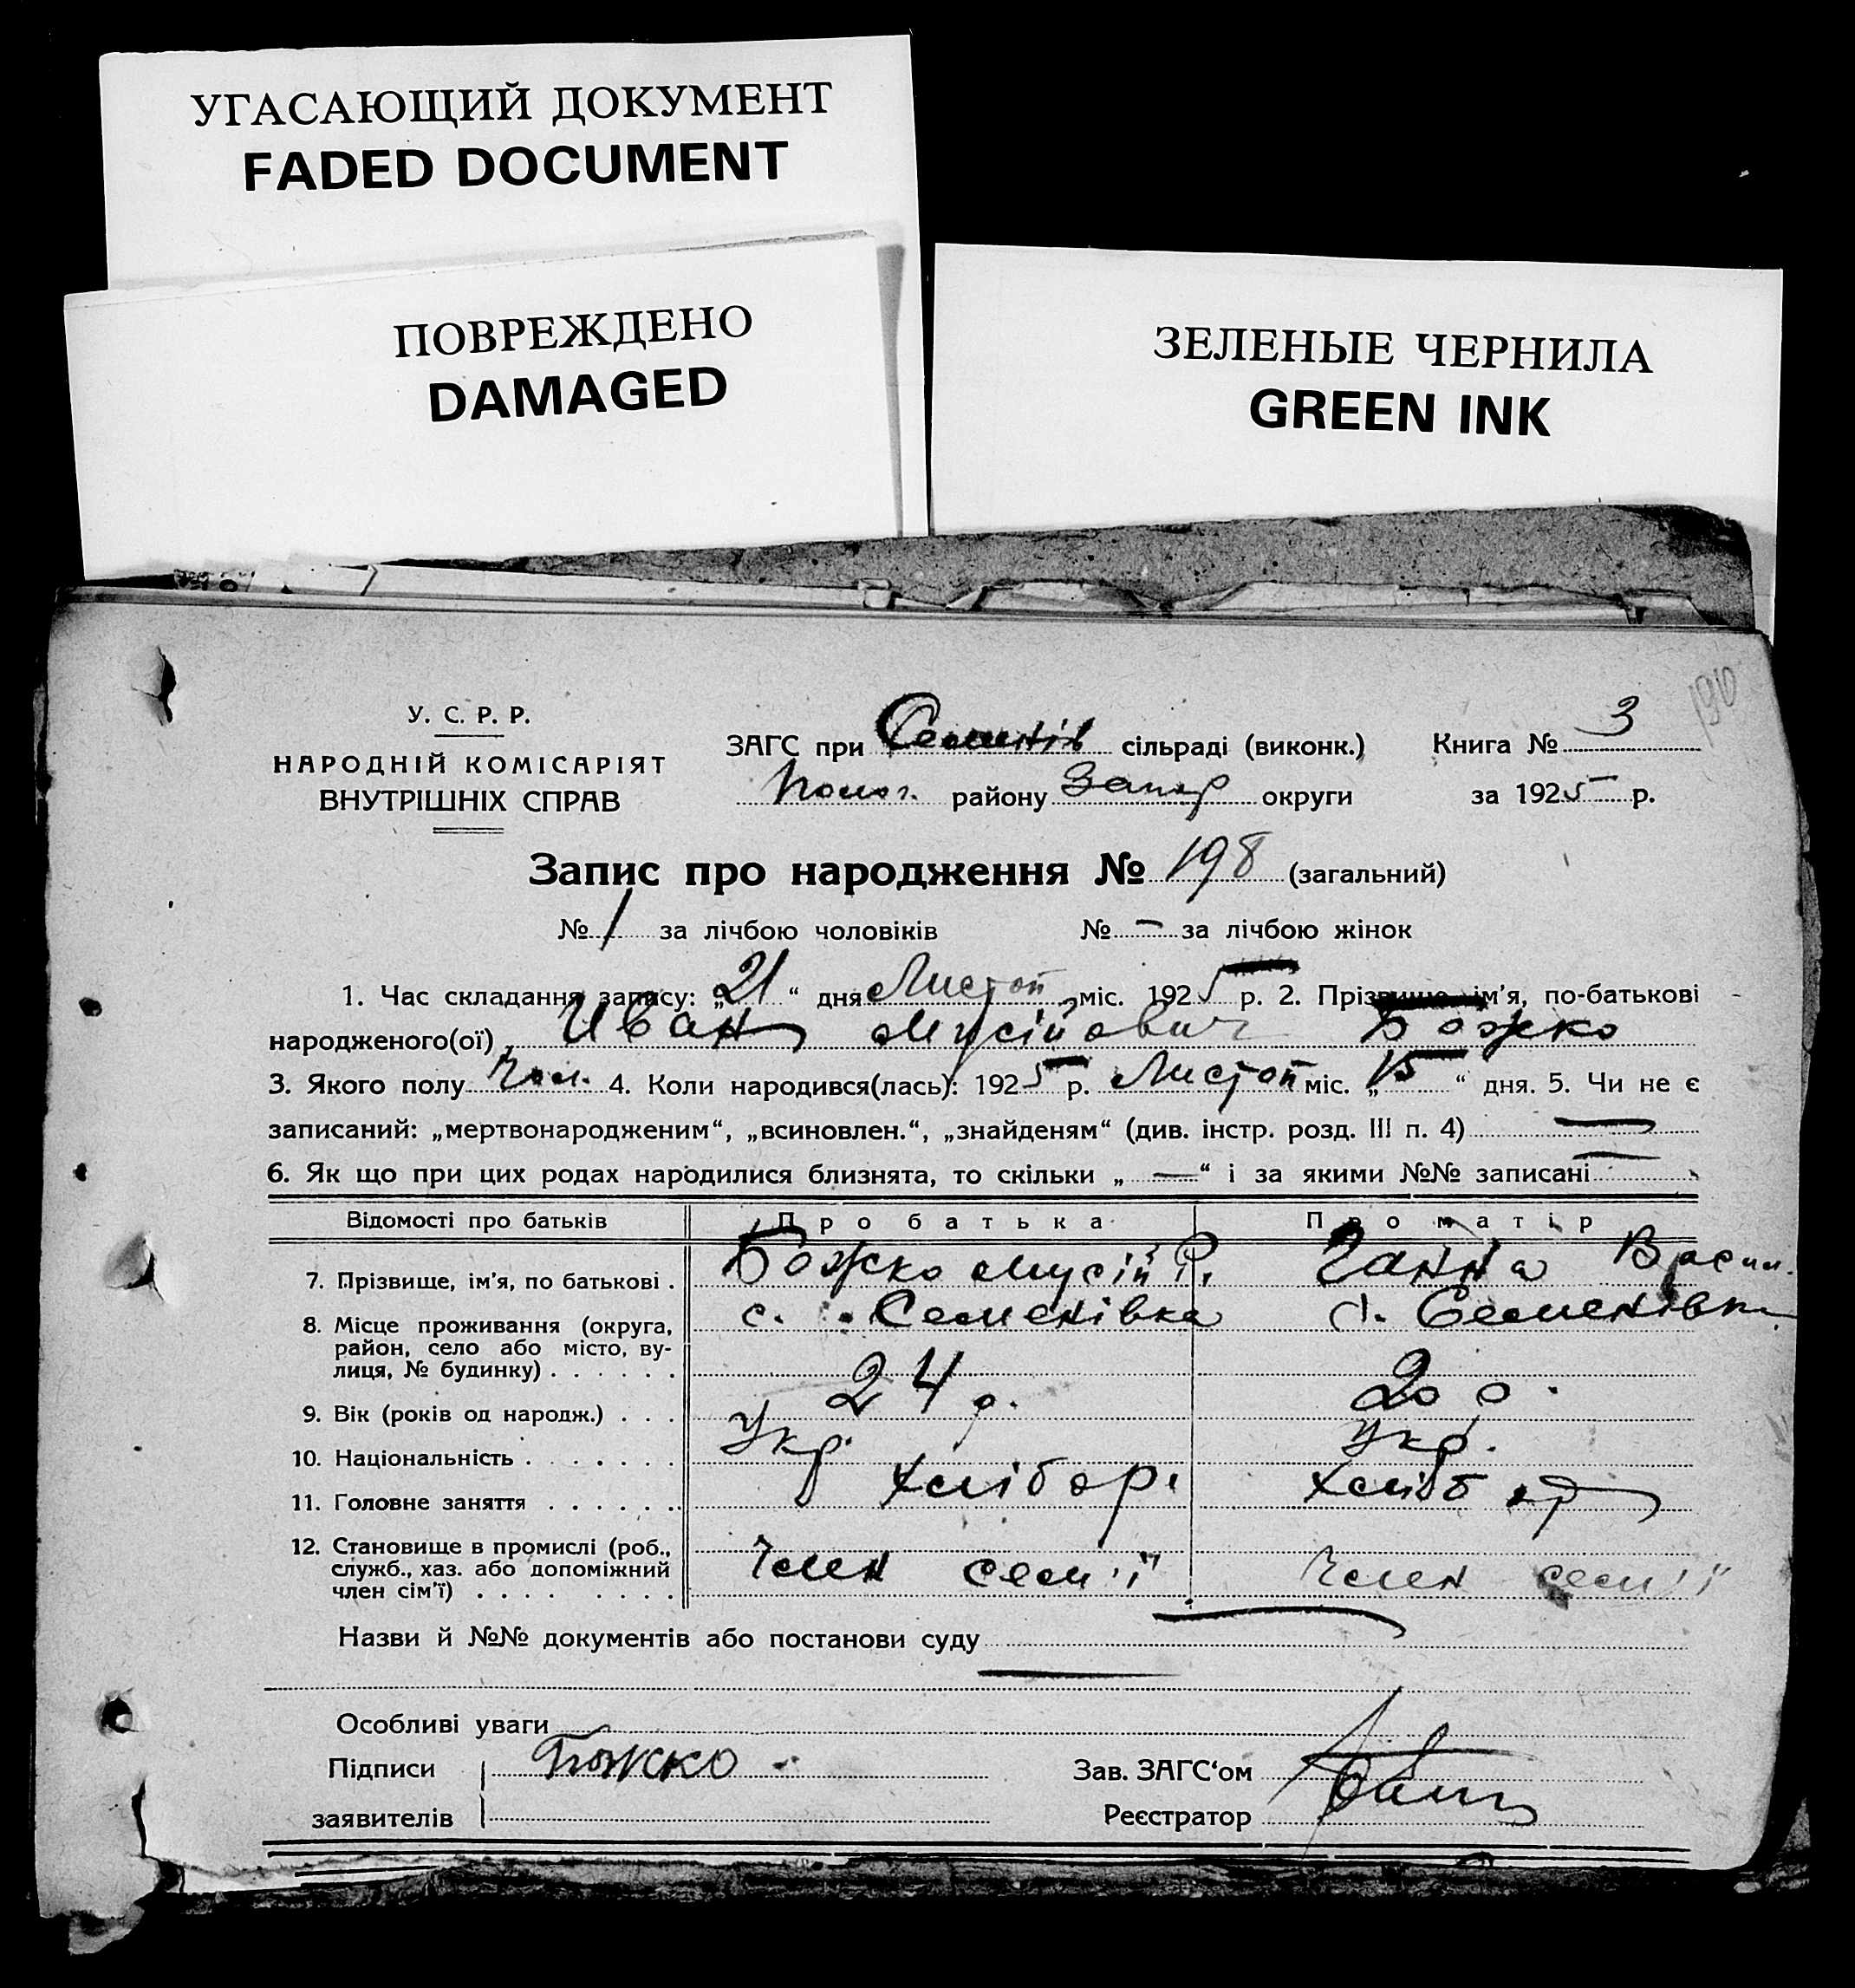 УГАСАЮЩИЙ ДОКУМЕНТ
FADED DOCUMENT
ПОВРЕЖДЕНО
DAMAGED
ЗЕЛЕНЫЕ ЧЕРНИЛА
GREEN INK
190
У. С. Р. Р.
НАРОДНІЙ КОМІСАРІЯТ
ВНУТРІШНІХ СПРАВ
ЗАГС при Семенів сільраді (виконк.) Книга № 3
Полог. району Запор округи за 1925 р.
Запис про народження № 198 (загальний)
№ 1 за лічбою чоловіків № — за лічбою жінок
1. Час складання запису: „21“ дня Листоп міс. 1925 р. 2. Прізвище, ім’я, по-батькові
народженого(ої) Иван Мусійович Божко
3. Якого полу Чол. 4. Коли народився(лась): 1925 р. Листоп міс. „15“ дня. 5. Чи не є
записаний: „мертвонародженим“, „всиновлен.“, „знайденям“ (див. інстр. розд. III п. 4) —
6. Як що при цих родах народилися близнята, то скільки „—“ і за якими №№ записані —
Відомості про батьків Про батька Про матір
7. Прізвище, ім’я, по батькові . Божко Мусій Ганна Васил.
8. Місце проживання (округа, с. Семенівка с. Семенівка
район, село або місто, ву-
лиця, № будинку) . . . . . .
9. Вік (років од народж.) . . . 24 р. 20 р.
10. Національність . . . . . . . Укр. Укр.
11. Головне заняття . . . . . . Хлібор. Хлібор
12. Становище в промислі (роб., Член сем'ії Член сем'ії
служб., хаз. або допоміжний
член сім’ї) . . . . . . . .
Назви й №№ документів або постанови суду —
Особливі уваги
Підписи Божко Зав. ЗАГС‘ом
заявителів Реєстратор